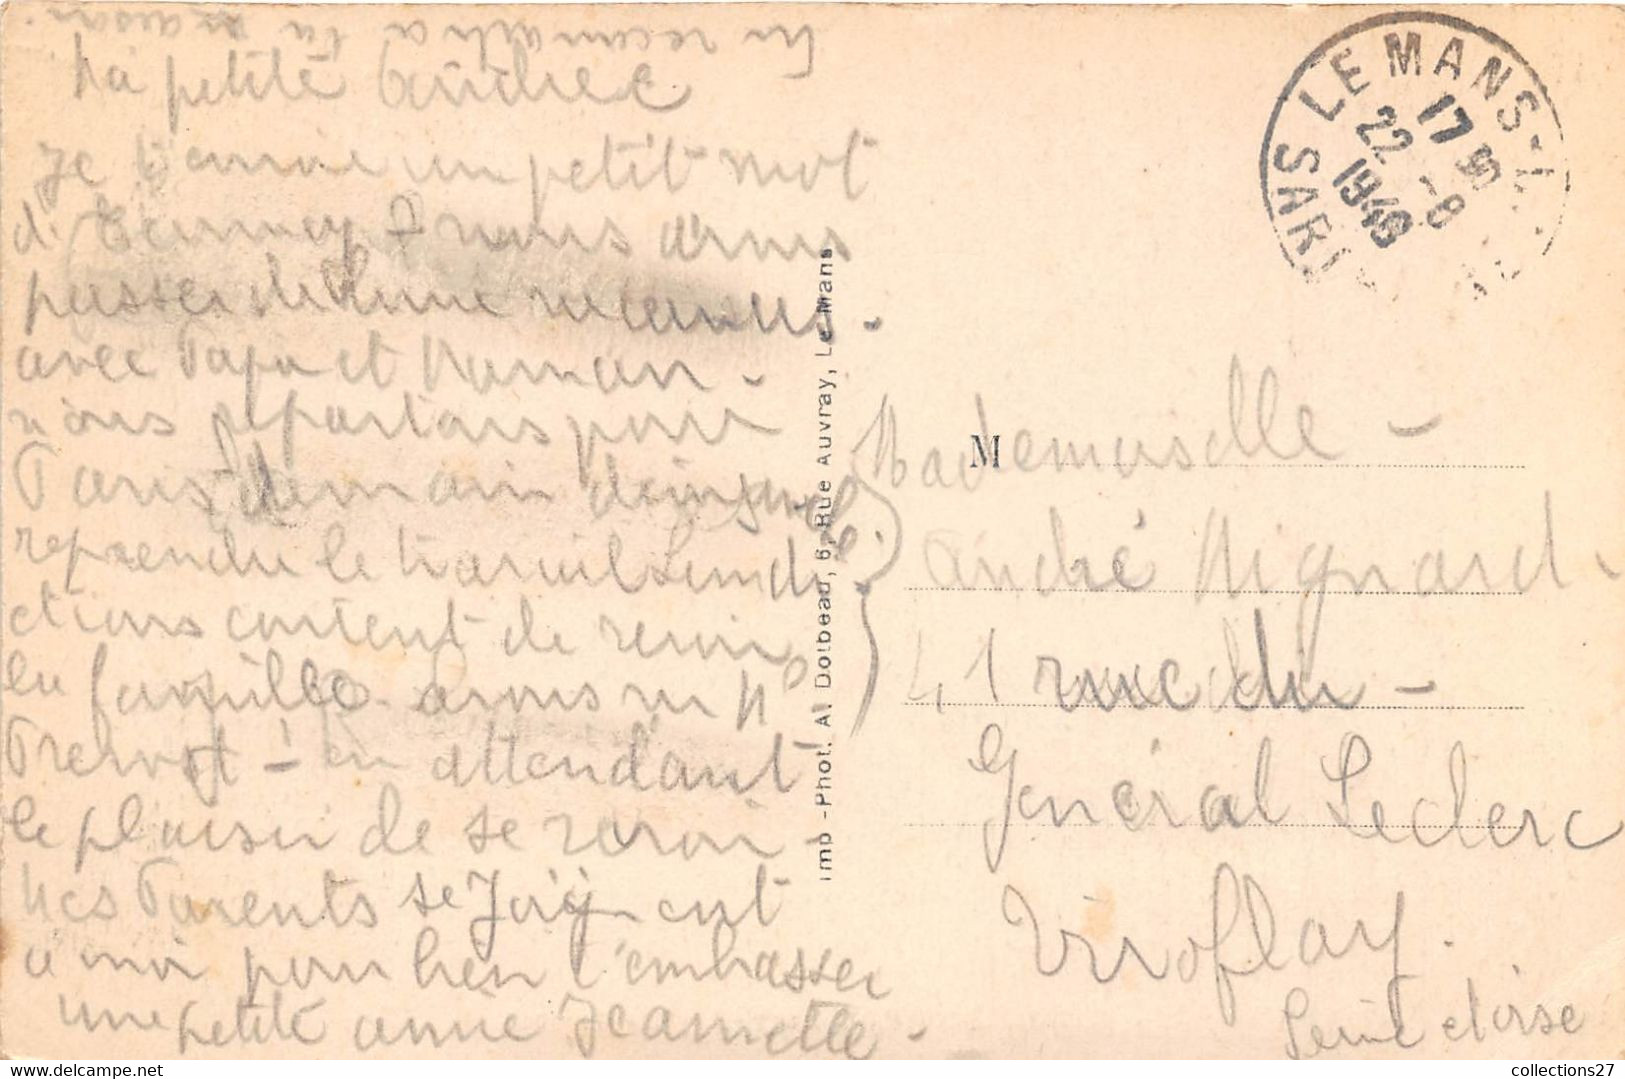 tu reconnaitra ta maison.
Ma petite Andrée
Je t'envoie un petit mot
d. nous avons
passer de bonne vacances.
avec Papa et Maman -
nous repartons pour
Paris demain
reprendre le travail Lundi
étions content de revoir
la famille. avons vu Me
Prevost - en attendant
le plaisir de se revoir -
Mes Parents se joignent
a moi pour bien t'embrasser
une petite amie Jeannette -
Imp - Phot. Al Dolbeau, 6, Rue Auvray, Le Mans
LE MANS
SAR
17 30
22 - 8
1946
M
Mademoiselle -
André Mignard -
41 rue du -
Général Leclerc
Viroflay.
Seine et oise
collections27